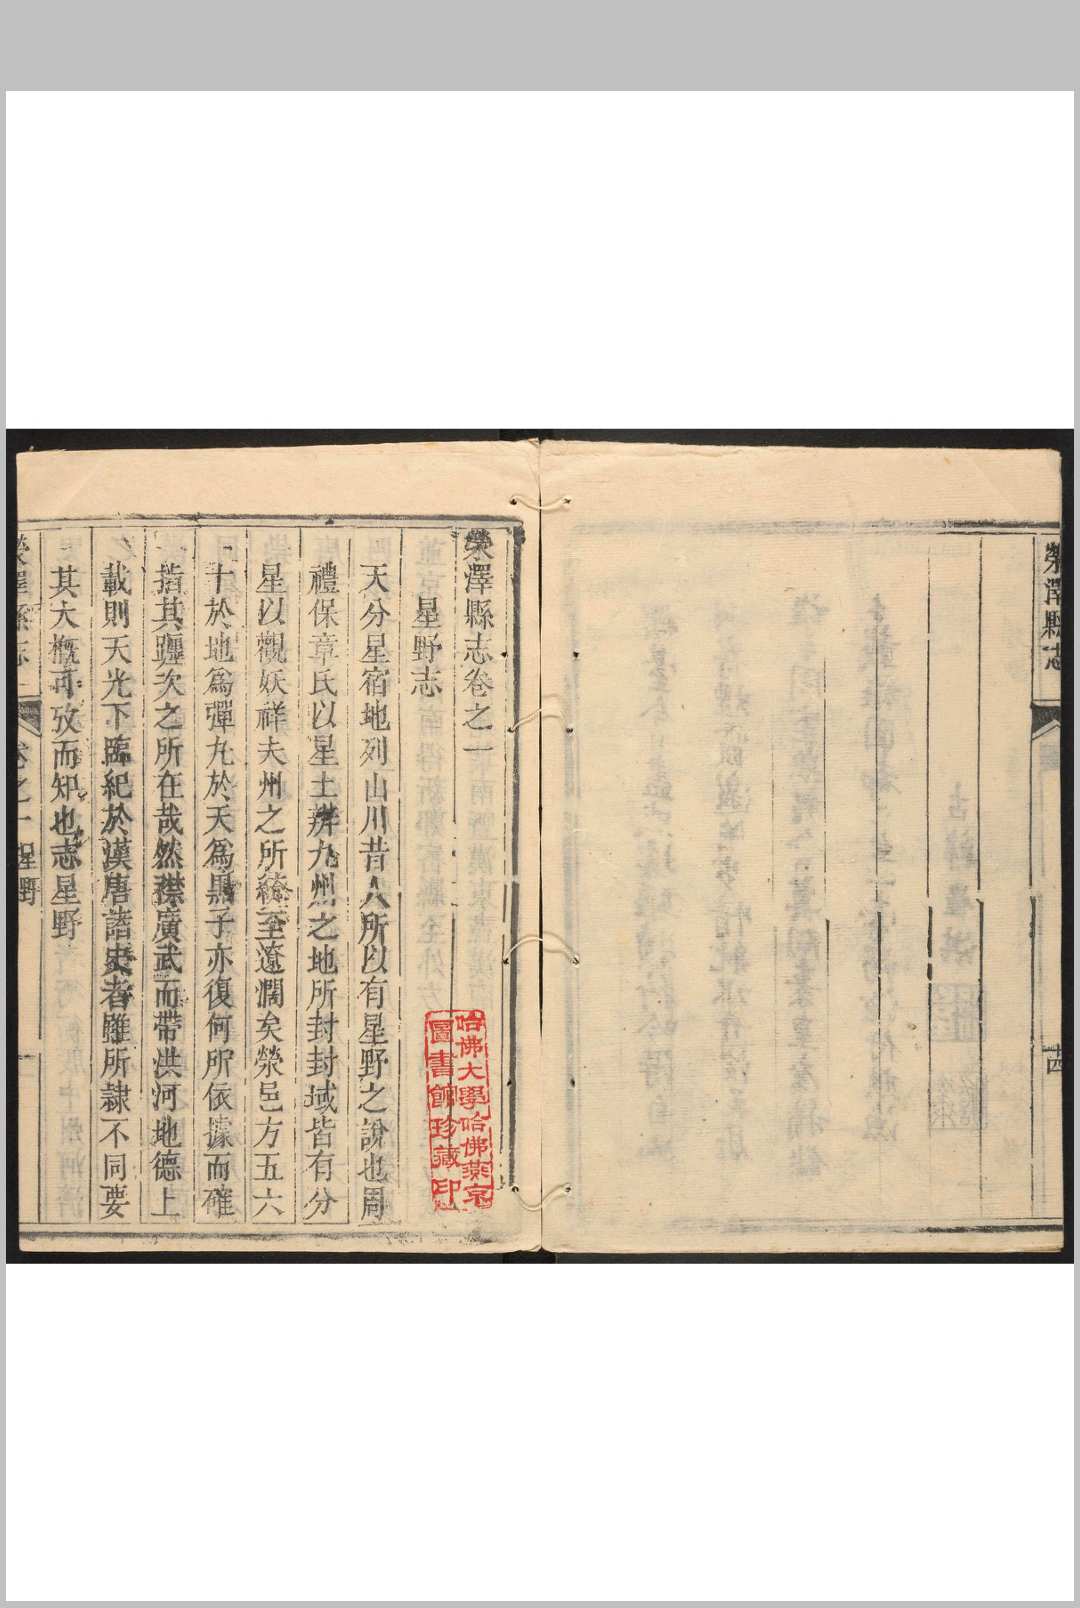 滎澤縣志
十四
滎澤縣志卷之一
星野志
天分星宿地列山川昔人所以有星野之說也周
禮保章氏以星土辨九州之地所封封域皆有分
星以觀妖祥夫州之所統至遼闊矣滎邑方五六
十於地為彈丸於天為黑子亦復何所依據而確
指其躔次之所在哉然襟廣武而帶洪河地德上
載則天光下臨紀於漢唐諸史者雖所隸不同要
其大槪可攷而知也志星野
滎澤縣志
卷之一 星野
哈佛大學哈佛燕京
圖書館珍藏印